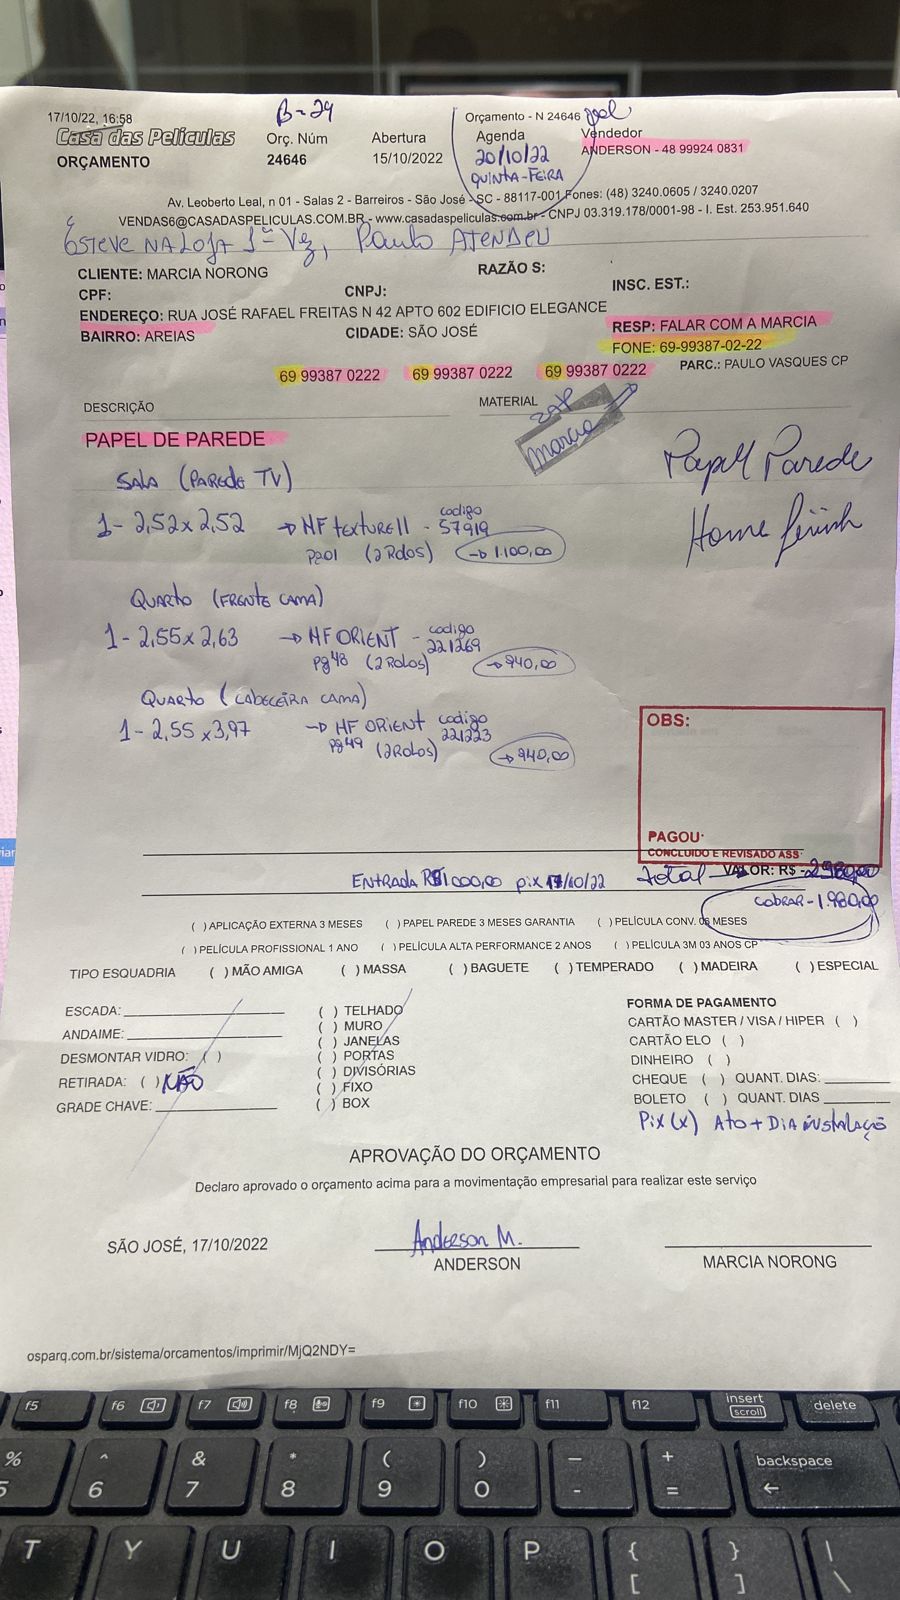 17/10/22, 16:58
B-29
Orçamento - N 24646
Casa das Películas
Orç. Núm
Abertura
Agenda
Vendedor
ORÇAMENTO
24646
15/10/2022
20/10/22
ANDERSON - 48 99924 0831
QUINTA-FEIRA
Av. Leoberto Leal, n 01 - Salas 2 - Barreiros - São José - SC - 88117-001 Fones: (48) 3240.0605 / 3240.0207
VENDAS6@CASADASPELICULAS.COM.BR - www.casadaspeliculas.com.br - CNPJ 03.319.178/0001-98 - I. Est. 253.951.640
ESTEVE NA LOJA 1ª Vez, Paulo ATENDEU
CLIENTE: MARCIA NORONG
RAZÃO S:
CPF:
CNPJ:
INSC. EST.:
ENDEREÇO: RUA JOSÉ RAFAEL FREITAS N 42 APTO 602 EDIFICIO ELEGANCE
BAIRRO: AREIAS
CIDADE: SÃO JOSÉ
RESP: FALAR COM A MARCIA
FONE: 69-99387-02-22
69 99387 0222 69 99387 0222 69 99387 0222
PARC.: PAULO VASQUES CP
DESCRIÇÃO
MATERIAL
zap
Marcia
PAPEL DE PAREDE
Papel Parede
Home finish
SALA (PAREDE TV)
1- 2,52 x 2,52 → HF texture II - codigo 57919
pg01 (2 Rolos) → 1.100,00
QUARTO (FRENTE CAMA)
1- 2,55 x 2,63 → HF ORIENT - codigo 221269
pg 48 (2 Rolos) → 940,00
QUARTO (CABECEIRA CAMA)
1- 2,55 x 3,97 → HF ORIENT codigo 221223
pg 49 (2 Rolos) → 940,00
OBS:
PAGOU·
CONCLUIDO E REVISADO ASS·
ENTRADA R$1000,00 pix 17/10/22
total → VALOR: R$ - 2980,00
COBRAR - 1.980,00
( ) APLICAÇÃO EXTERNA 3 MESES ( ) PAPEL PAREDE 3 MESES GARANTIA ( ) PELÍCULA CONV. 06 MESES
( ) PELÍCULA PROFISSIONAL 1 ANO ( ) PELÍCULA ALTA PERFORMANCE 2 ANOS ( ) PELÍCULA 3M 03 ANOS CP
TIPO ESQUADRIA ( ) MÃO AMIGA ( ) MASSA ( ) BAGUETE ( ) TEMPERADO ( ) MADEIRA ( ) ESPECIAL
ESCADA:
ANDAIME:
DESMONTAR VIDRO: ( )
RETIRADA: ( ) NÃO
GRADE CHAVE:
( ) TELHADO
( ) MURO
( ) JANELAS
( ) PORTAS
( ) DIVISÓRIAS
( ) FIXO
( ) BOX
FORMA DE PAGAMENTO
CARTÃO MASTER / VISA / HIPER ( )
CARTÃO ELO ( )
DINHEIRO ( )
CHEQUE ( ) QUANT. DIAS:
BOLETO ( ) QUANT. DIAS
Pix (x) Ato + DIA instalação
APROVAÇÃO DO ORÇAMENTO
Declaro aprovado o orçamento acima para a movimentação empresarial para realizar este serviço
SÃO JOSÉ, 17/10/2022
Anderson M.
ANDERSON
MARCIA NORONG
osparq.com.br/sistema/orcamentos/imprimir/MjQ2NDY=
f5 f6 f7 f8 f9 f10 f11 f12 insert scroll delete
% 5 ^ 6 & 7 * 8 ( 9 ) 0 — - + = backspace
T Y U I O P { [ } ] | \